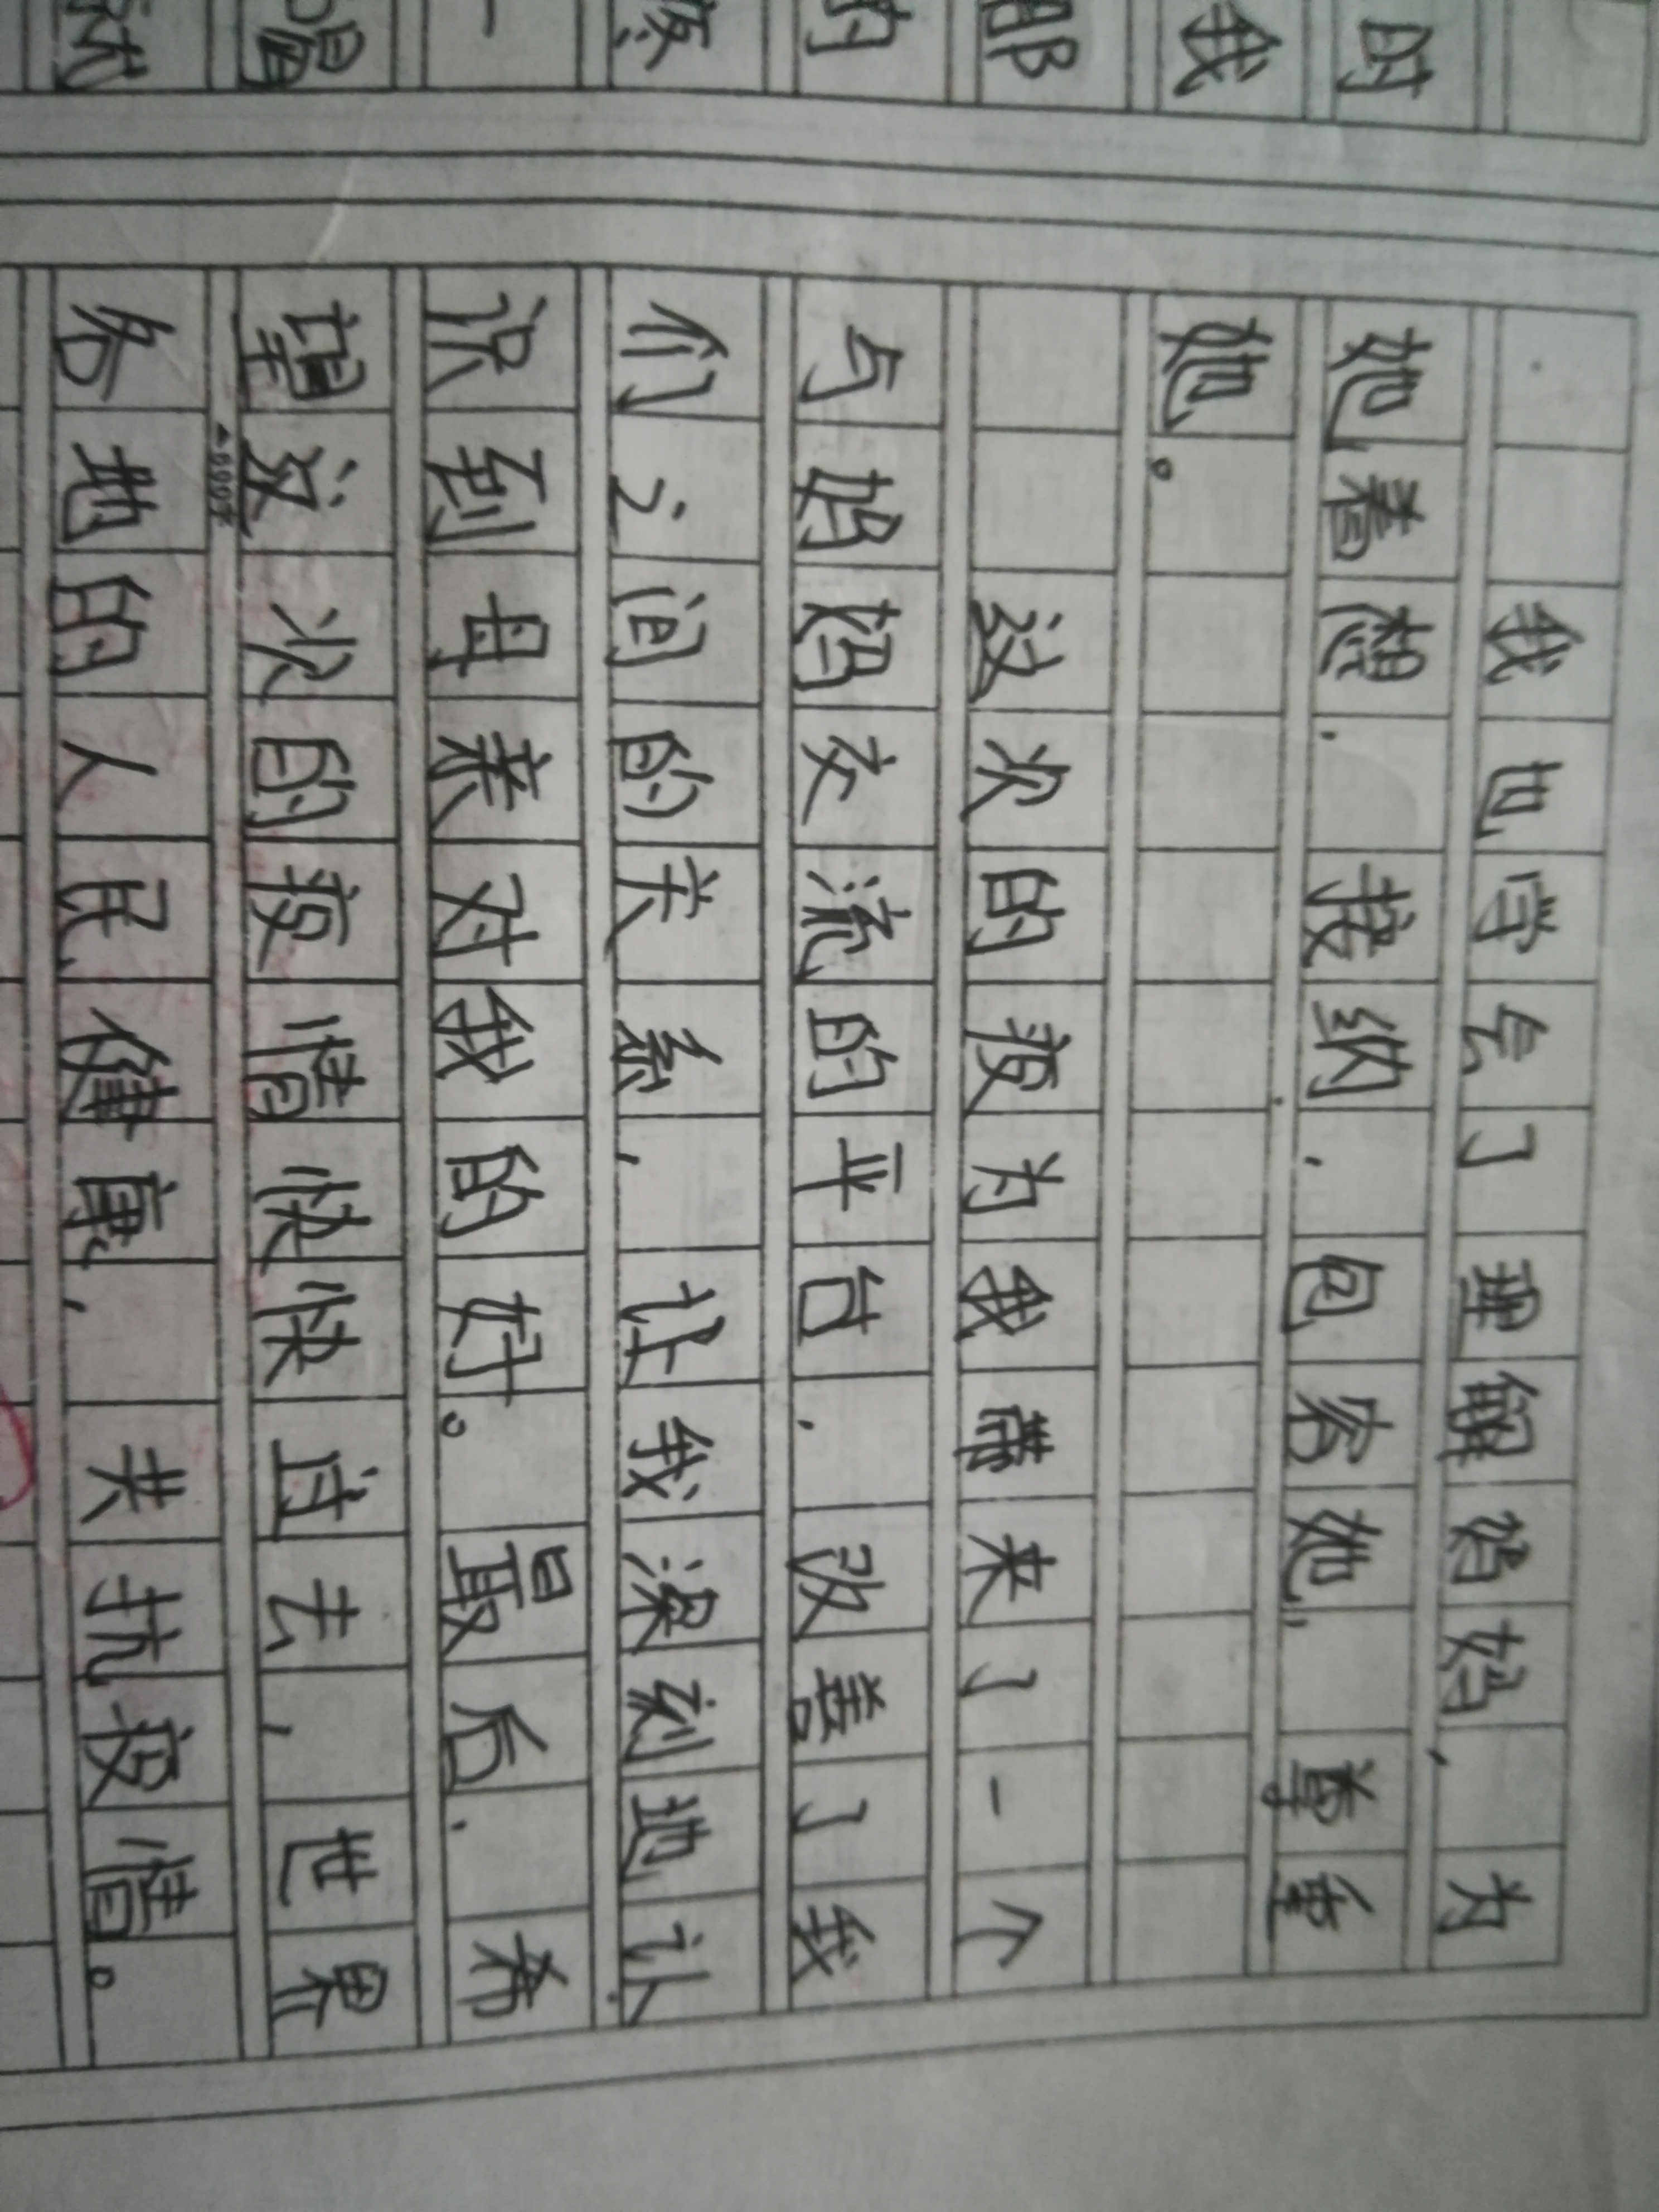 我也学会了理解妈妈，为
她着想，接纳，包容她，尊重
她。
这次的疫为我带来了一个
与妈妈交流的平台，改善了我
们之间的关系，让我深刻地认
识到母亲对我的好。最后，希
望这次的疫情快快过去，世界
各地的人民健康，共抗疫情。
时
我
那
的
一